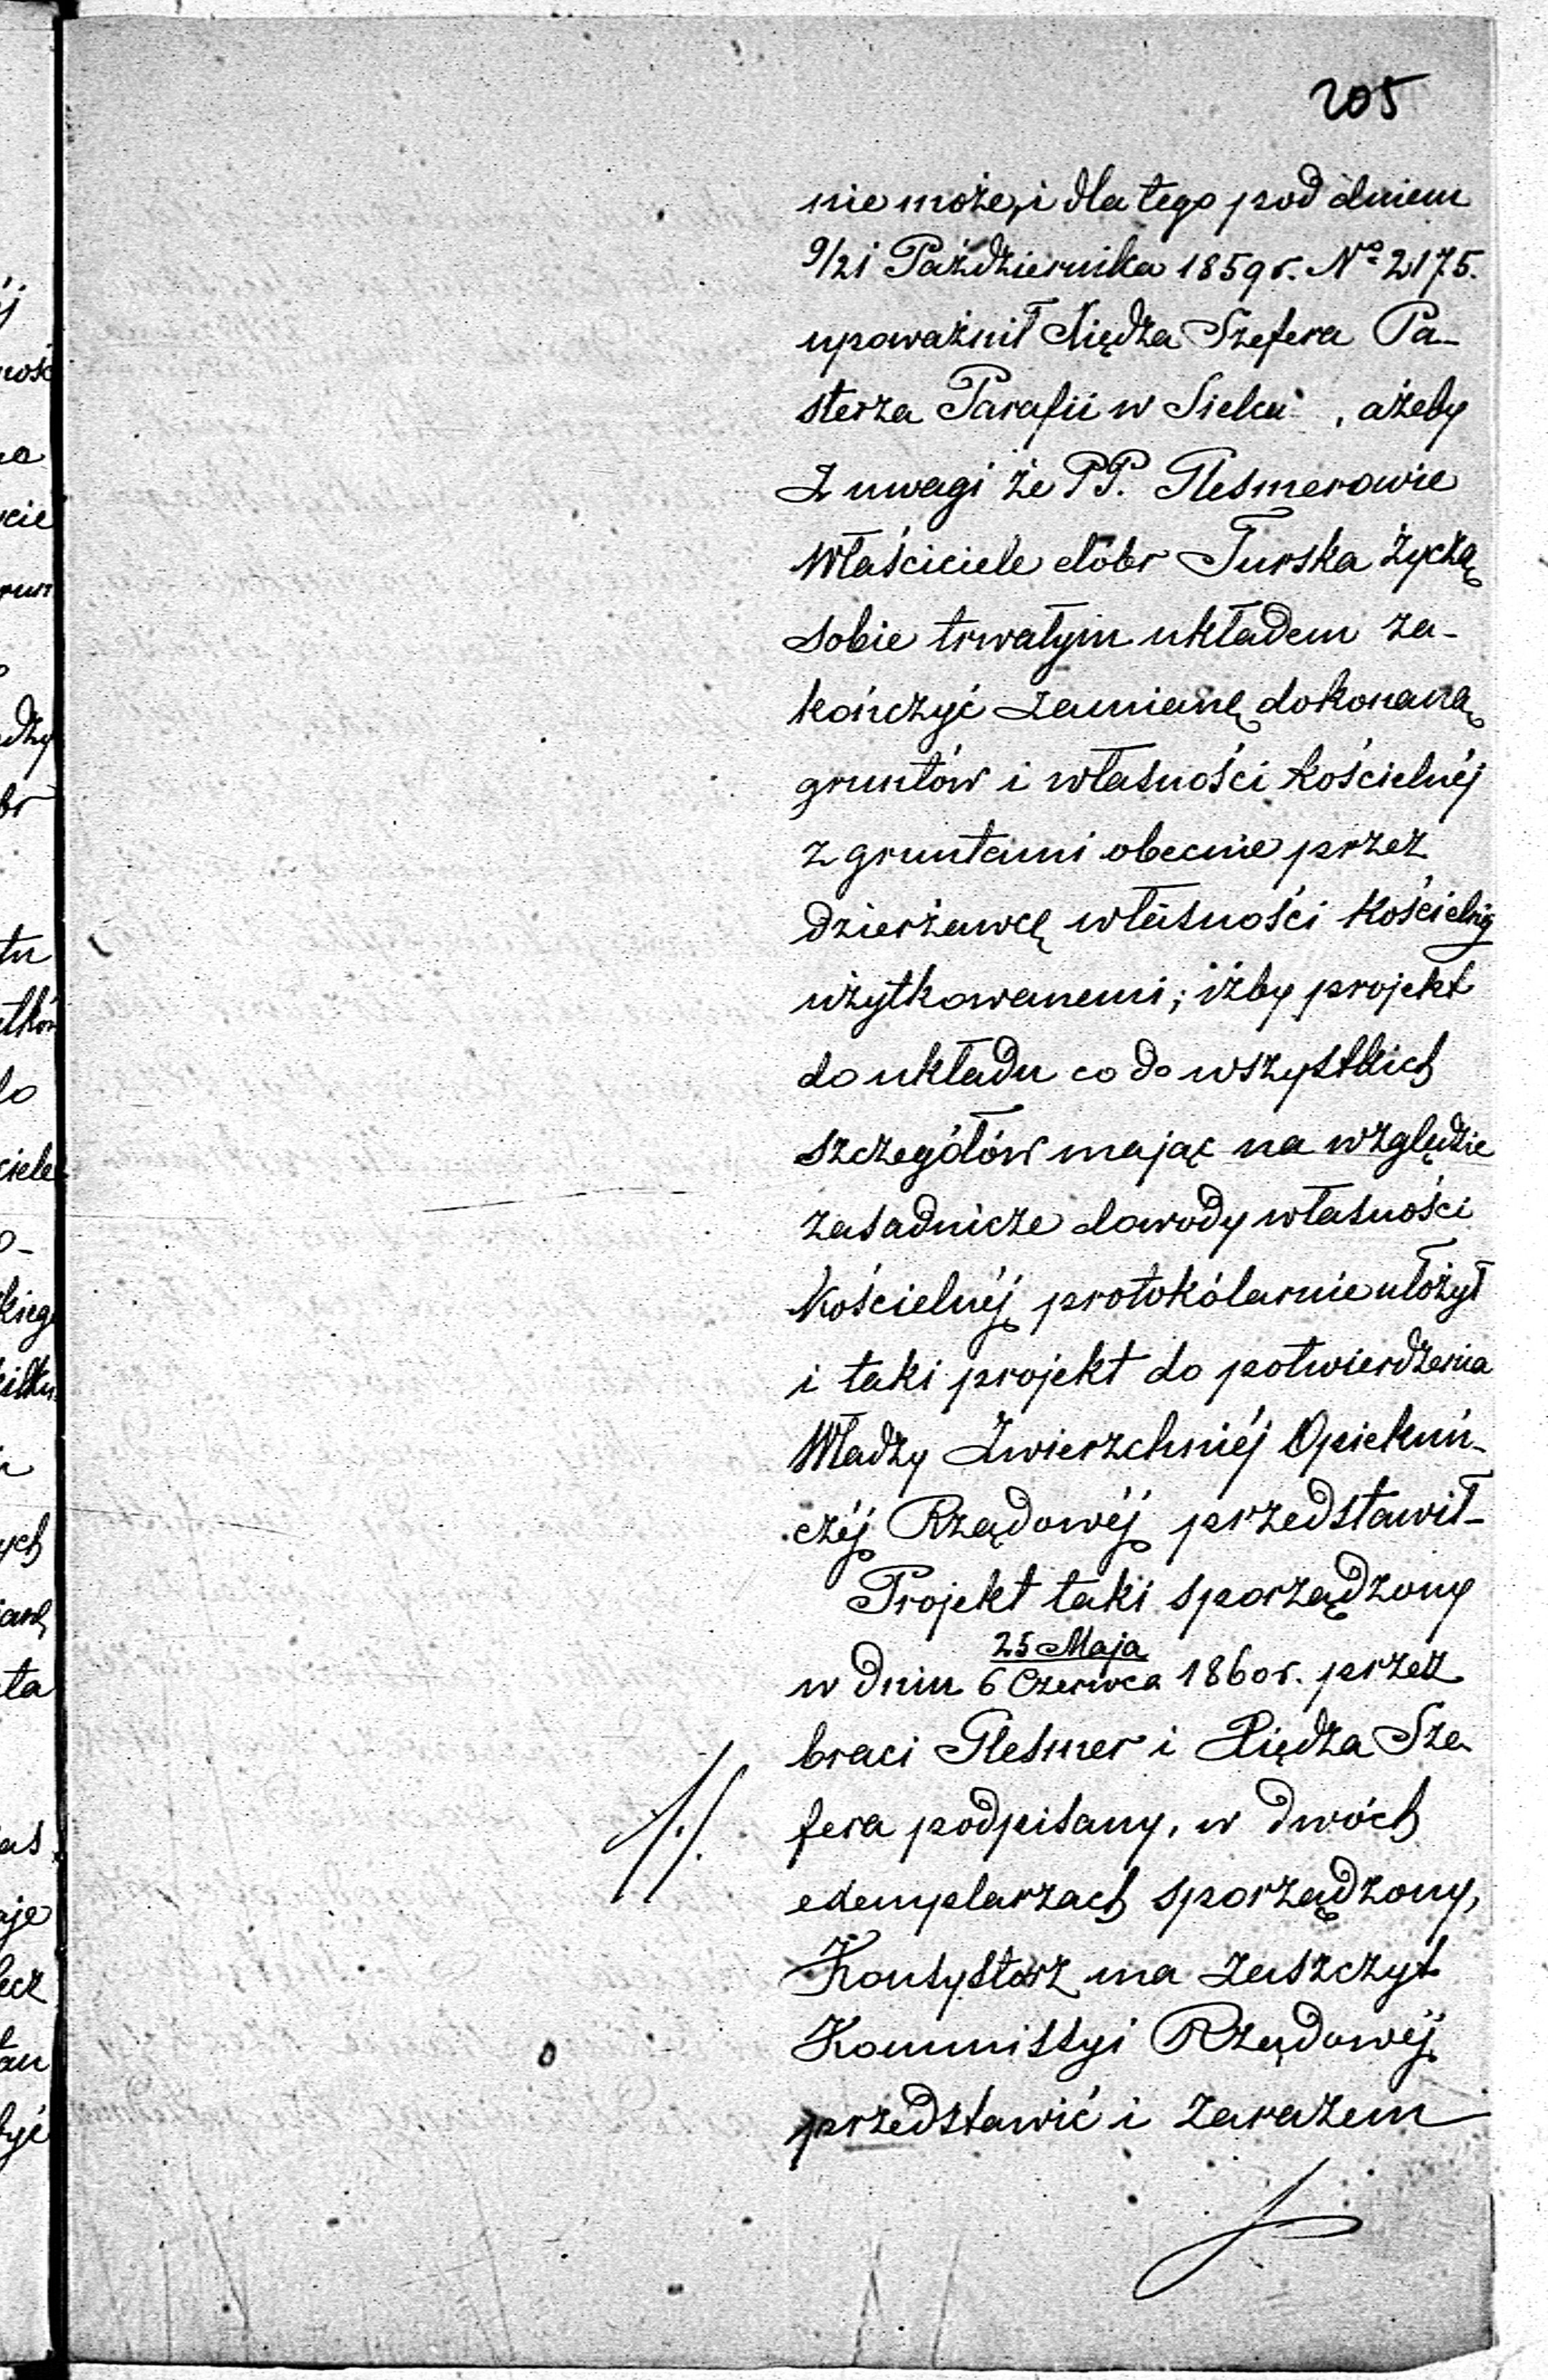 205
nie może, i dla tego pod dniem
9/21 Października 1859 r. No 2175.
upoważnił Księdza Szefera Pa-
sterza Parafii w Sielcu, ażeby
z uwagi że PP. Plesmerowie
Właściciele dóbr Turska życzą
sobie trwałym układem za-
kończyć zamianę dokonaną
gruntów i własności kościelnéj
z gruntami obecnie przez
dzierżawcę własności kościelnéj
użytkowanemi; iżby projekt
do układu co do wszystkich
szczegółów mając na względzie
zasadnicze dowody własności
kościelnéj, protokólarnie ułożył
i taki projekt do potwierdzenia
Władzy Zwierzchniéj Opiekuń-
czéj Rządowéj przedstawił-
Projekt taki sporządzony
w dniu 25 Maja / 6 Czerwca 1860 r. przez
braci Plesmer i Xiędza Sze
fera podpisany, w dwóch
exemplarzach sporządzony,
//.
Konsystorz ma zaszczyt
Kommissyi Rządowéj
przedstawić i zarazem